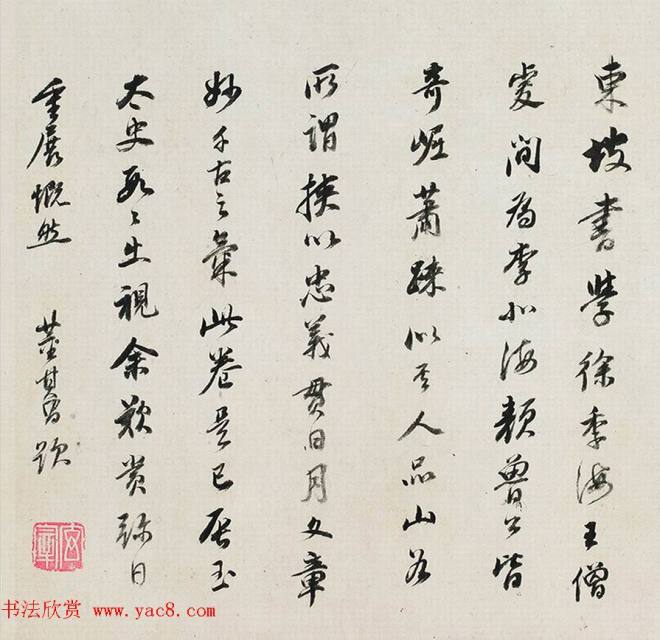 東坡書學徐季海王僧
虔間為李北海顏魯公皆
奇崛蕭疎似其人品山谷
所謂挟以忠義貫日月文章
妙千古之氣此卷是已唐玉
太史每々出視余歎賞弥日
重展慨然
董其昌題
书法欣赏 www.yac8.com